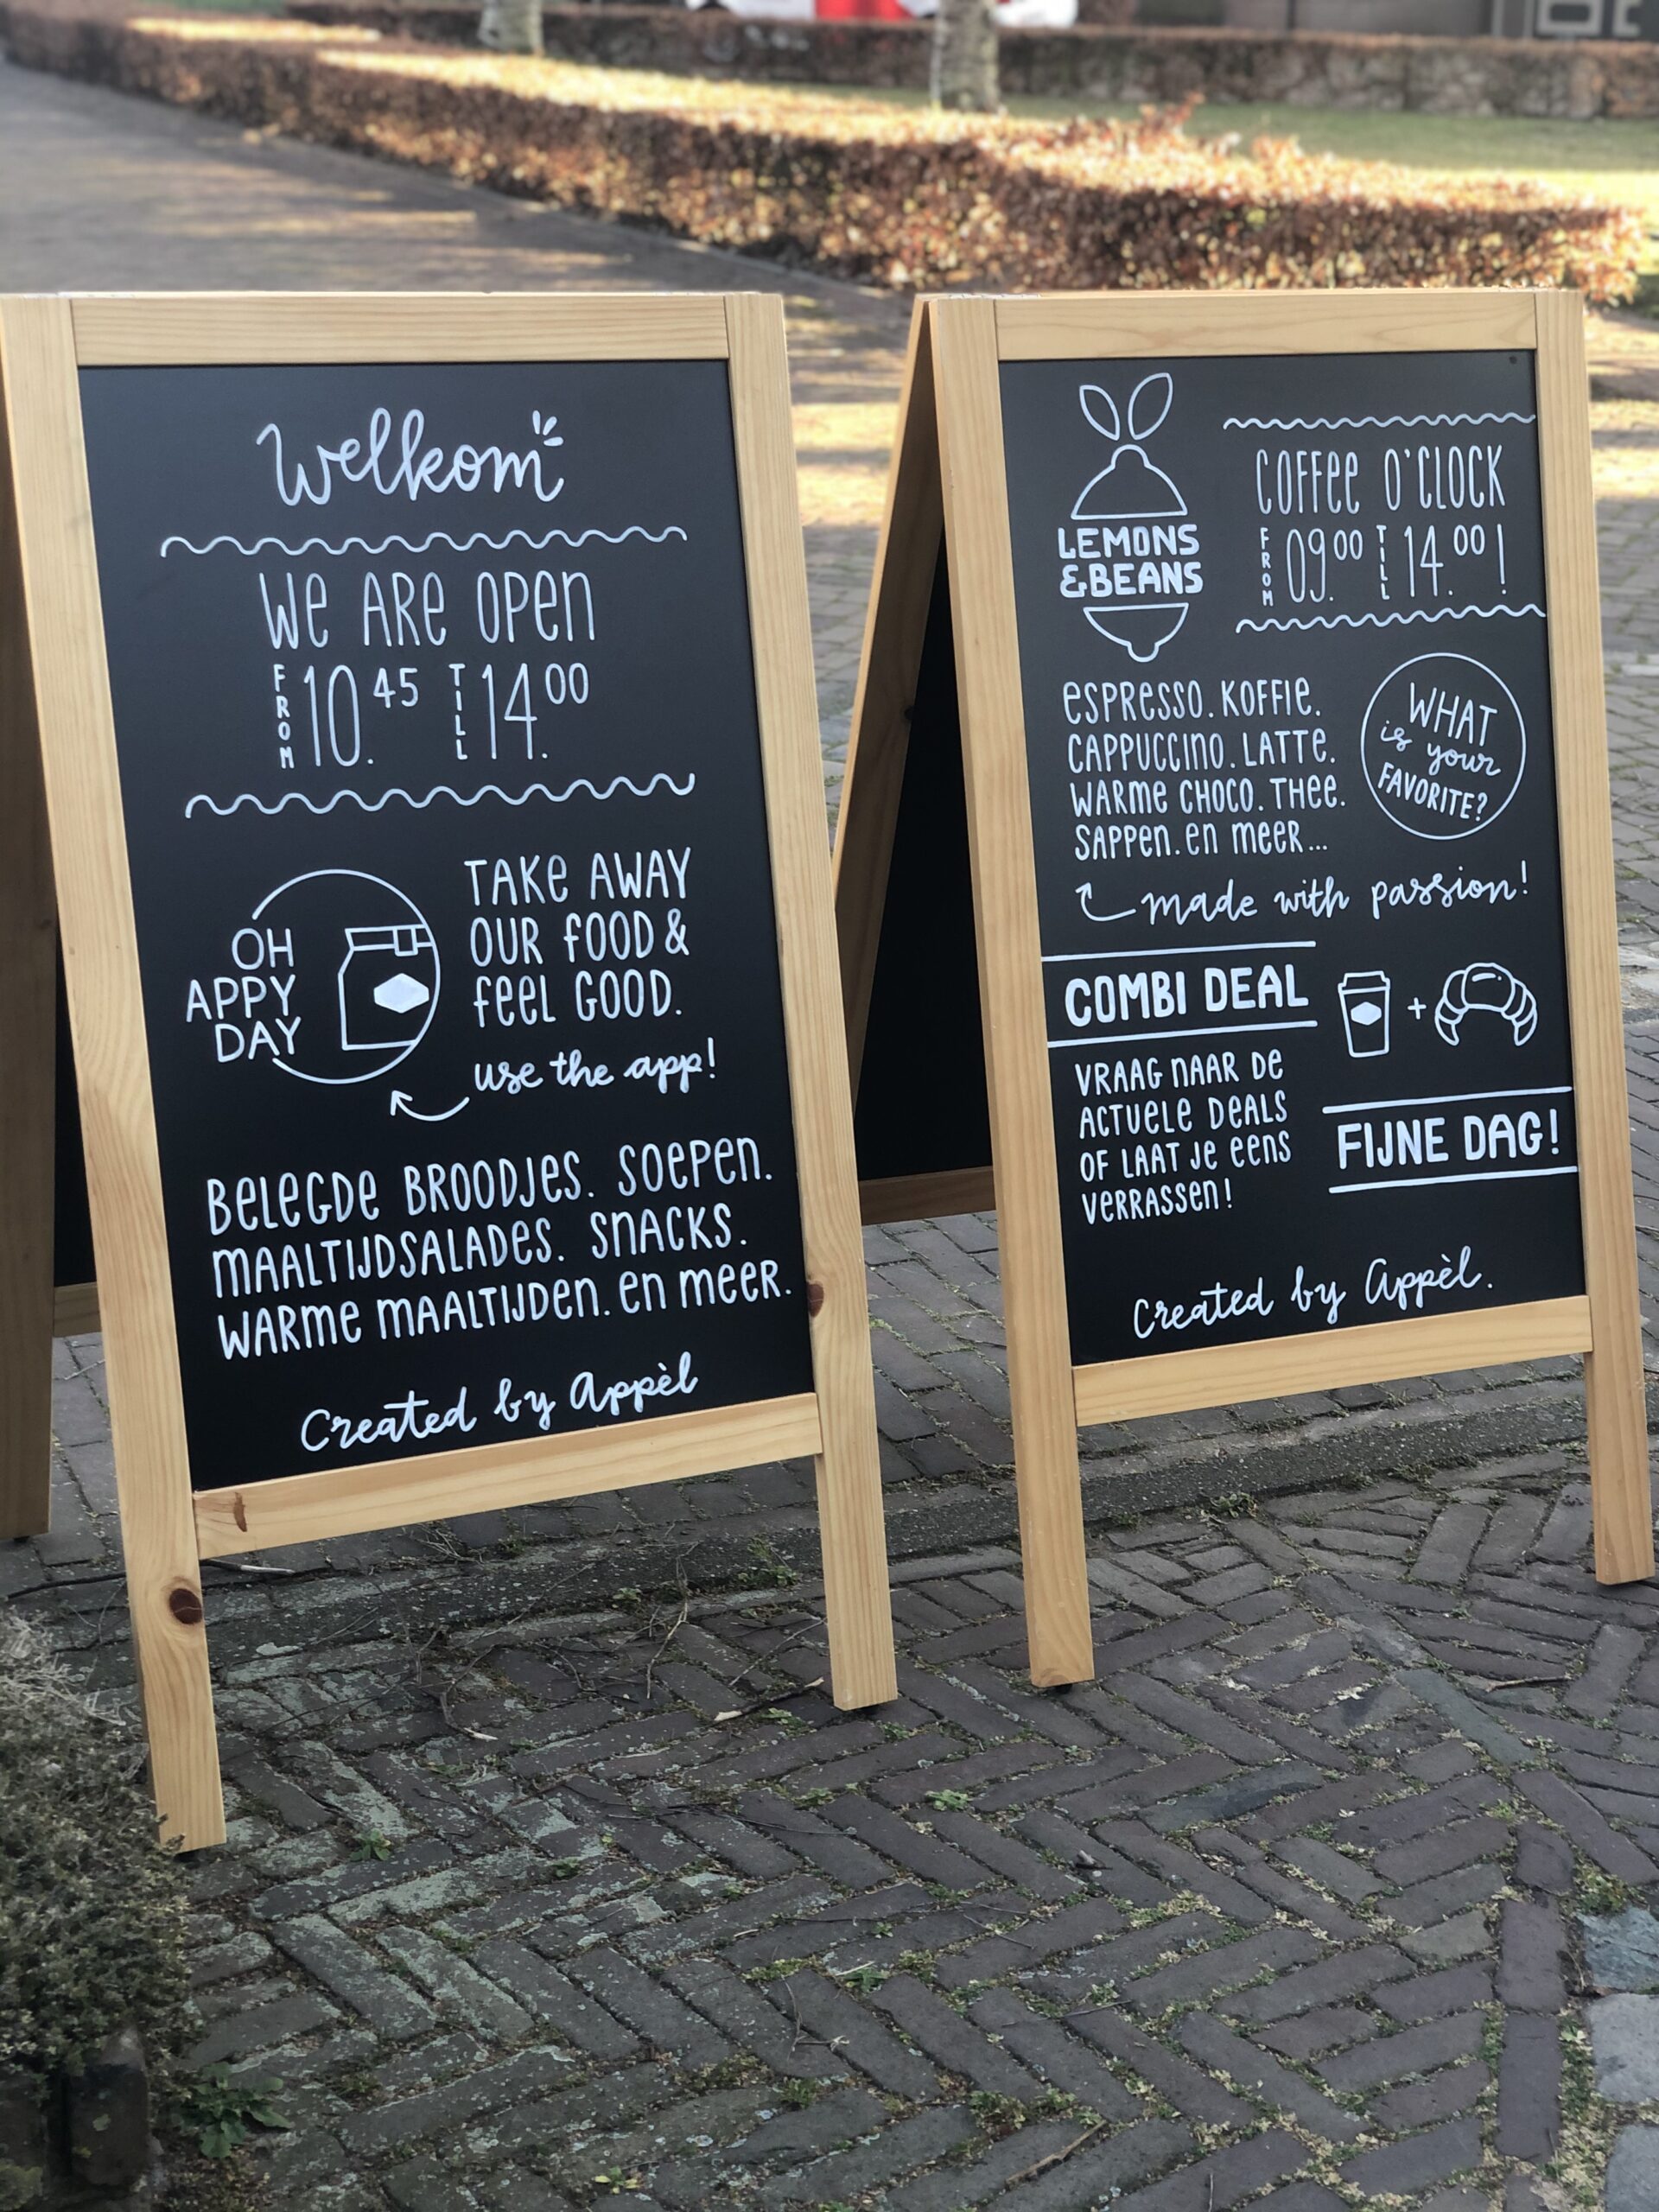 Welkom
WE ARE OPEN
FROM 10.45 TILL 14.00
OH
APPY
DAY
TAKE AWAY
OUR FOOD &
FEEL GOOD.
use the app!
BELEGDE BROODJES. SOEPEN.
MAALTIJDSALADES. SNACKS.
WARME MAALTIJDEN. EN MEER.
Created by Appèl
LEMONS
&BEANS
COFFEE O'CLOCK
FROM 09.00 TILL 14.00!
ESPRESSO. KOFFIE.
CAPPUCCINO. LATTE.
WARME CHOCO. THEE.
SAPPEN. EN MEER...
WHAT
is your
FAVORITE?
made with passion!
COMBI DEAL
+
VRAAG NAAR DE
ACTUELE DEALS
OF LAAT JE EENS
VERRASSEN!
FIJNE DAG!
Created by Appèl.